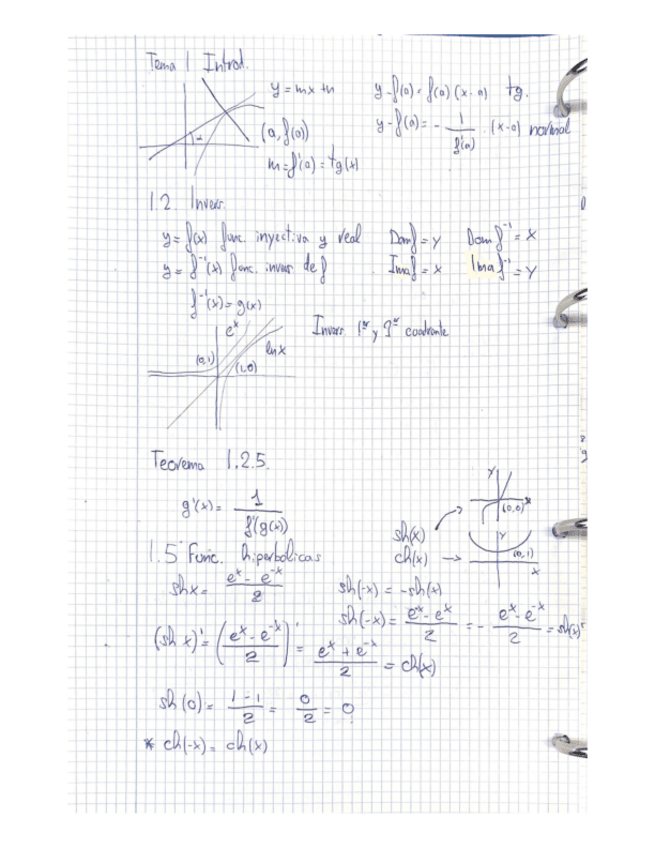 Tema 1 Introd.
y = mx + n
y - f(a) = f(a) (x - a) tg.
(a, f(a))
y - f(a) = - 1/f'(a) · (x - a) normal
m = f'(a) = tg(α)
1.2. Invers.
y = f(x) func. inyectiva y real Dom f = Y Dom f⁻¹ = X
y = f⁻¹(x) func. invers de f Ima f = X Ima f⁻¹ = Y
f⁻¹(x) = g(x)
eˣ
Invers 1er y 3er cuadrante
ln x
(0,1)
(1,0)
Teorema 1.2.5.
g'(x) = 1/f'(g(x))
Y
X
(0,0)
sh(x)
1.5 Func. hiperbólicas
ch(x) →
Y
(0,1)
X
sh x = (eˣ - e⁻ˣ)/2
sh(-x) = -sh(x)
sh(-x) = (e⁻ˣ - eˣ)/2 = - (eˣ - e⁻ˣ)/2 = -sh(x)
(sh x)' = ((eˣ - e⁻ˣ)/2)' = (eˣ + e⁻ˣ)/2 = ch(x)
sh(0) = (1 - 1)/2 = 0/2 = 0
* ch(-x) = ch(x)